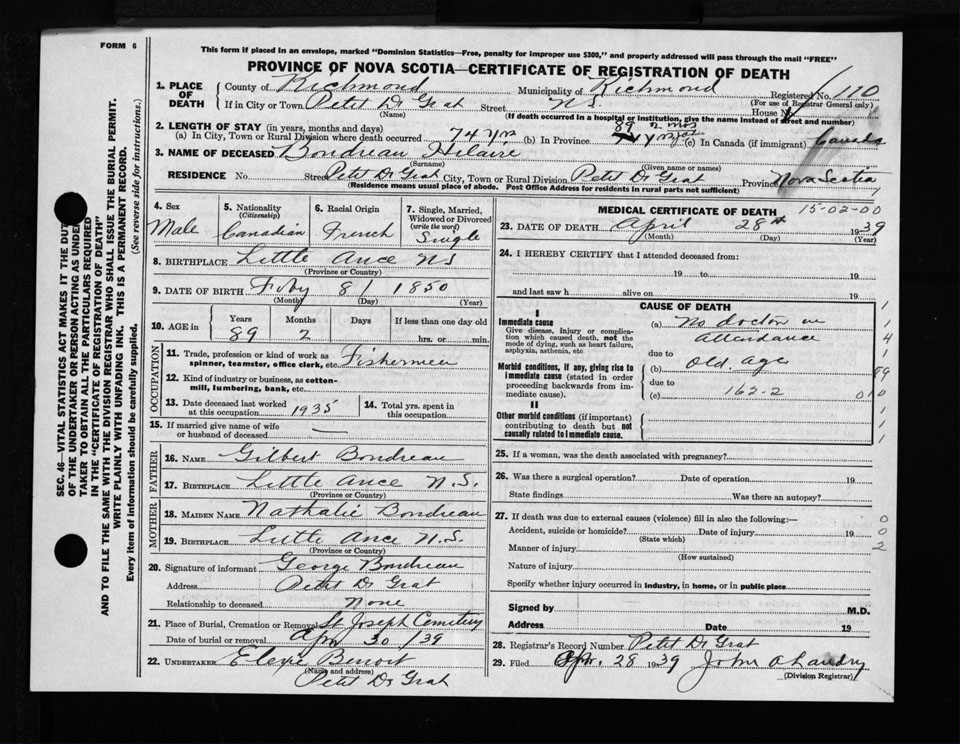 FORM 6
This form if placed in an envelope, marked "Dominion Statistics—Free, penalty for improper use $300," and properly addressed will pass through the mail "FREE"
PROVINCE OF NOVA SCOTIA—CERTIFICATE OF REGISTRATION OF DEATH
1. PLACE OF DEATH
County of Richmond Municipality of Richmond Registered No. 110
(For use of Registrar General only)
If in City or Town Petit De Grat Street N.S. House No.
(Name) (If death occurred in a hospital or institution, give the name instead of street and number)
2. LENGTH OF STAY (in years, months and days)
(a) In City, Town or Rural Division where death occurred 74 yrs (b) In Province 89 2 mos (c) In Canada (if immigrant) Canada
3. NAME OF DECEASED Bondreau Hilaire
(Surname) (Given name or names)
RESIDENCE No Street Petit De Grat City, Town or Rural Division Petit De Grat Province Nova Scotia
(Residence means usual place of abode. Post Office Address for residents in rural parts not sufficient)
4. Sex Male
5. Nationality (Citizenship) Canadian
6. Racial Origin French
7. Single, Married, Widowed or Divorced (write the word) Single
8. BIRTHPLACE Little Ance NS
(Province or Country)
9. DATE OF BIRTH Feby 8 / 1850
(Month) (Day) (Year)
10. AGE in Years Months Days If less than one day old
89 2 hrs. or min.
OCCUPATION
11. Trade, profession or kind of work as spinner, teamster, office clerk, etc. Fishermen
12. Kind of industry or business, as cotton-mill, lumbering, bank, etc.
13. Date deceased last worked at this occupation 1935
14. Total yrs. spent in this occupation
15. If married give name of wife or husband of deceased —
FATHER
16. NAME Gilbert Bondreau
17. BIRTHPLACE Little Ance N.S.
(Province or Country)
MOTHER
18. MAIDEN NAME Nathalie Bondreau
19. BIRTHPLACE Little Ance N.S.
(Province or Country)
20. Signature of informant George Bondreau
Address Petit De Grat
Relationship to deceased None
21. Place of Burial, Cremation or Removal St Joseph Cemetery
Date of burial or removal Apr 30 / 39
22. UNDERTAKER Elexi Benoit
(Name and address)
Petit De Grat
MEDICAL CERTIFICATE OF DEATH 15-02-00
23. DATE OF DEATH April 28th 1939
(Month) (Day) (Year)
24. I HEREBY CERTIFY that I attended deceased from:
19 to 19
and last saw h alive on 19
CAUSE OF DEATH
I
Immediate cause
Give disease, injury or complication which caused death, not the mode of dying, such as heart failure, asphyxia, asthenia, etc
(a) No doctor in attendance
due to
Morbid conditions, if any, giving rise to immediate cause (stated in order proceeding backwards from immediate cause).
(b) Old age
due to
(c) 162-2
II
Other morbid conditions (if important) contributing to death but not causally related to immediate cause.
1
1
4
1
89
010
1
1
1
25. If a woman, was the death associated with pregnancy?
26. Was there a surgical operation? Date of operation 19
State findings Was there an autopsy?
27. If death was due to external causes (violence) fill in also the following:— 0
Accident, suicide or homicide? Date of injury 19 0
(State which)
Manner of injury 2
(How sustained)
Nature of injury
Specify whether injury occurred in industry, in home, or in public place
Signed by M.D.
Address Date 19
28. Registrar's Record Number Petit De Grat
29. Filed Apr. 28 1939 John A Landry
(Division Registrar)
SEC. 46—VITAL STATISTICS ACT MAKES IT THE DUTY
OF THE UNDERTAKER OR PERSON ACTING AS UNDERTAKER TO OBTAIN ALL THE PARTICULARS REQUIRED
IN THE "CERTIFICATE OF REGISTRATION OF DEATH"
AND TO FILE THE SAME WITH THE DIVISION REGISTRAR WHO SHALL ISSUE THE BURIAL PERMIT.
WRITE PLAINLY WITH UNFADING INK. THIS IS A PERMANENT RECORD.
Every item of information should be carefully supplied. (See reverse side for instructions.)